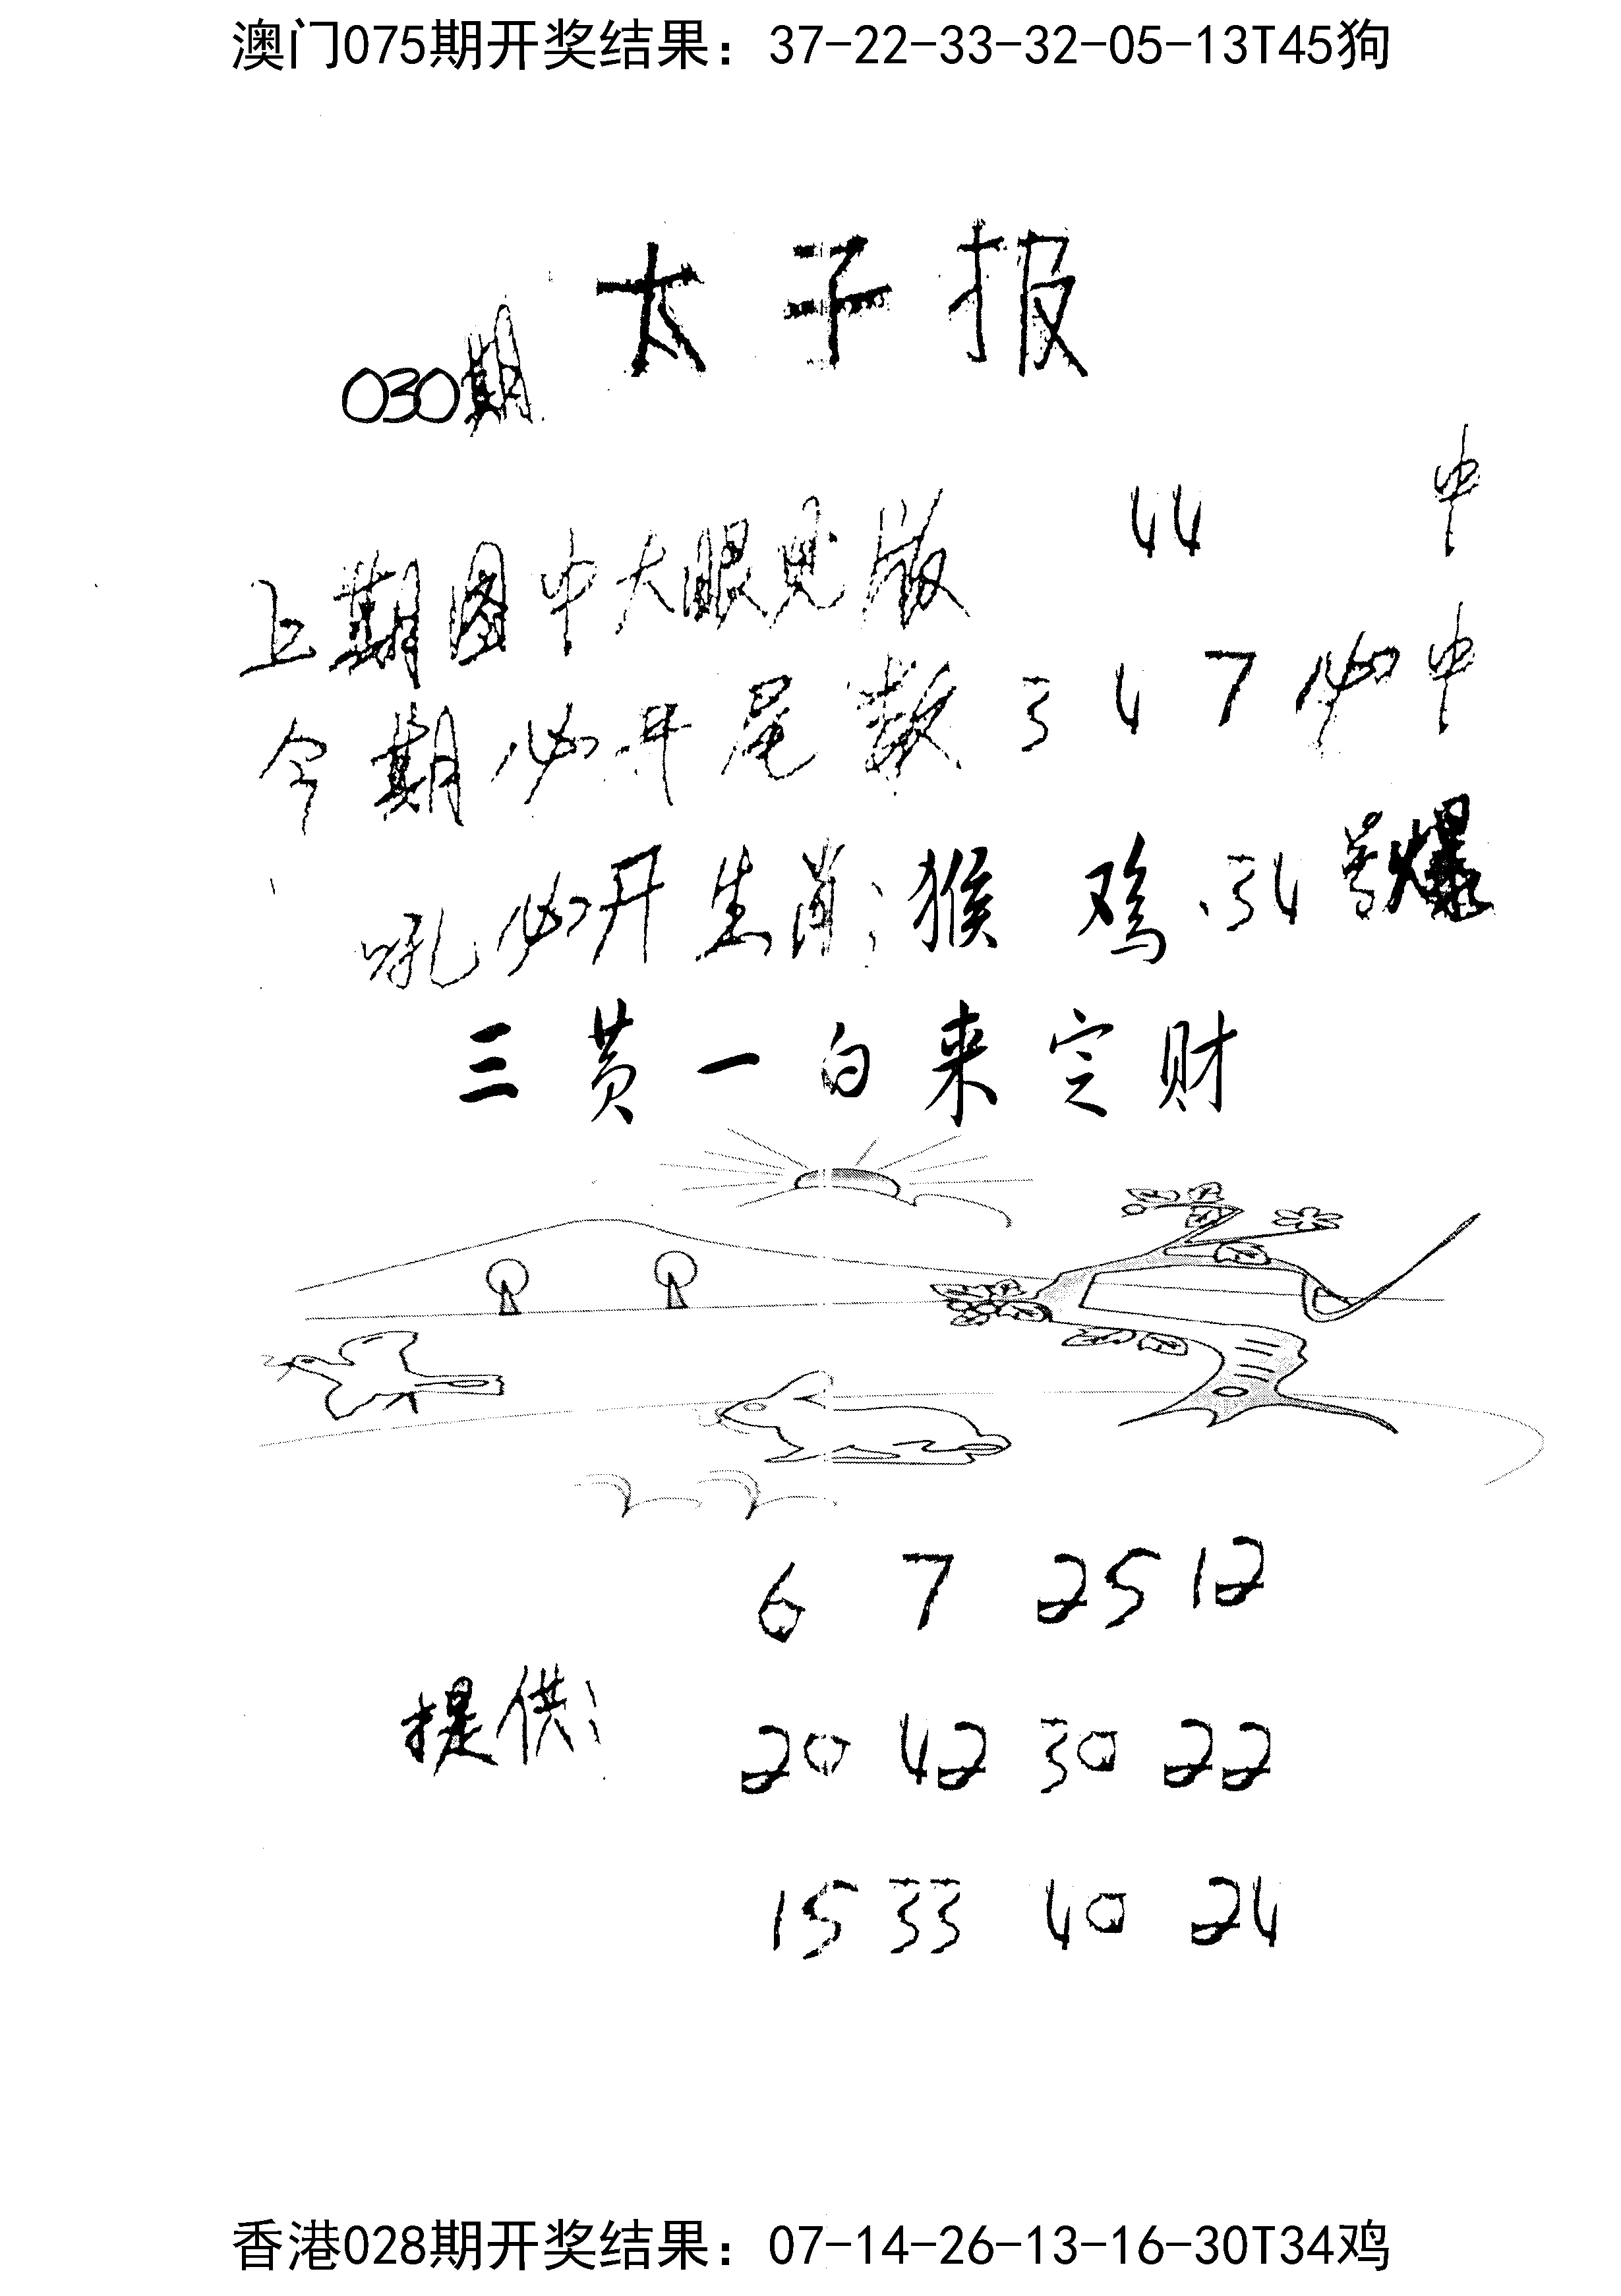 澳门075期开奖结果：37-22-33-32-05-13T45狗
太子报
030期
上期图中大眼见版 44 中
今期必开尾数 3 4 7 必中
吼必开生肖：猴 鸡、34 号爆
三黄一白来定财
6 7 25 12
提供：
20 42 30 22
15 33 40 24
香港028期开奖结果：07-14-26-13-16-30T34鸡